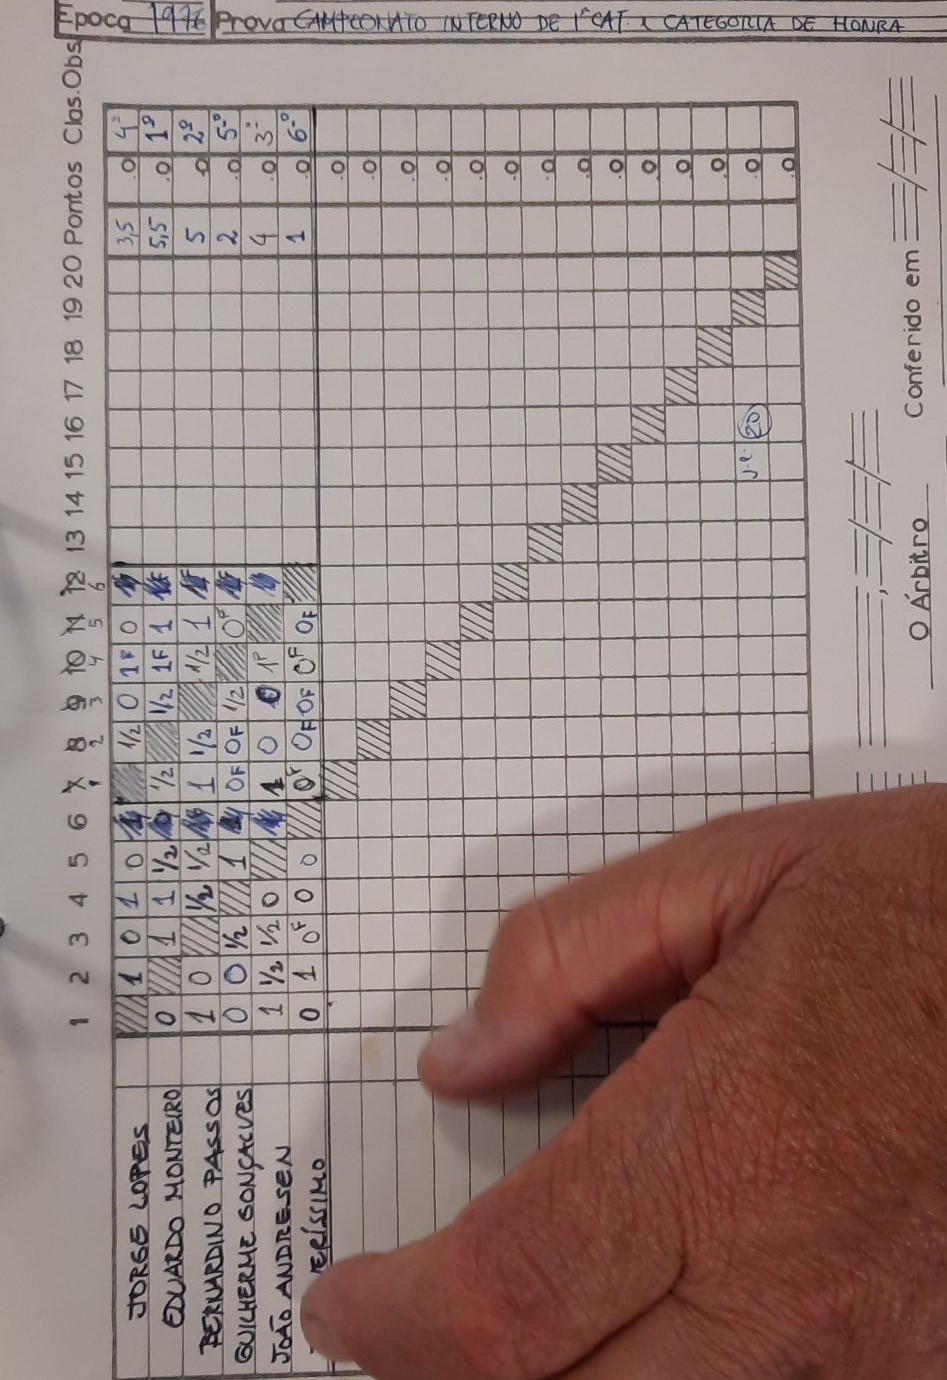 Época 1976 Prova CAMPEONATO INTERNO DE 1ª CAT. e CATEGORIA DE HONRA
1 2 3 4 5 6 7 8 9 10 11 12 13 14 15 16 17 18 19 20 Pontos Clas. Obs
1 2 3 4 5 6
JORGE LOPES 1 0 1 0 1/2 0 1F 0 3,5 .0 4º
EDUARDO MONTEIRO 0 1 1 1/2 1/2 1/2 1F 1 5,5 .0 1º
BERNARDINO PASSOS 1 0 1/2 1/2 1 1/2 1/2 1 5 .0 2º
GUILHERME GONÇALVES 0 0 1/2 1 0F 0F 1/2 0F 2 .0 5º
JOÃO ANDRESEN 1 1/2 1/2 0 1 0 0 1F 4 .0 3º
ERÍSSIMO 0 1 0F 0 0 0F 0F 0F 0F 0F 1 .0 6º
.0
.0
.0
.0
.0
.0
.0
.0
.0
.0
.0
.0
.0
.0
20
O Árbitro Conferido em